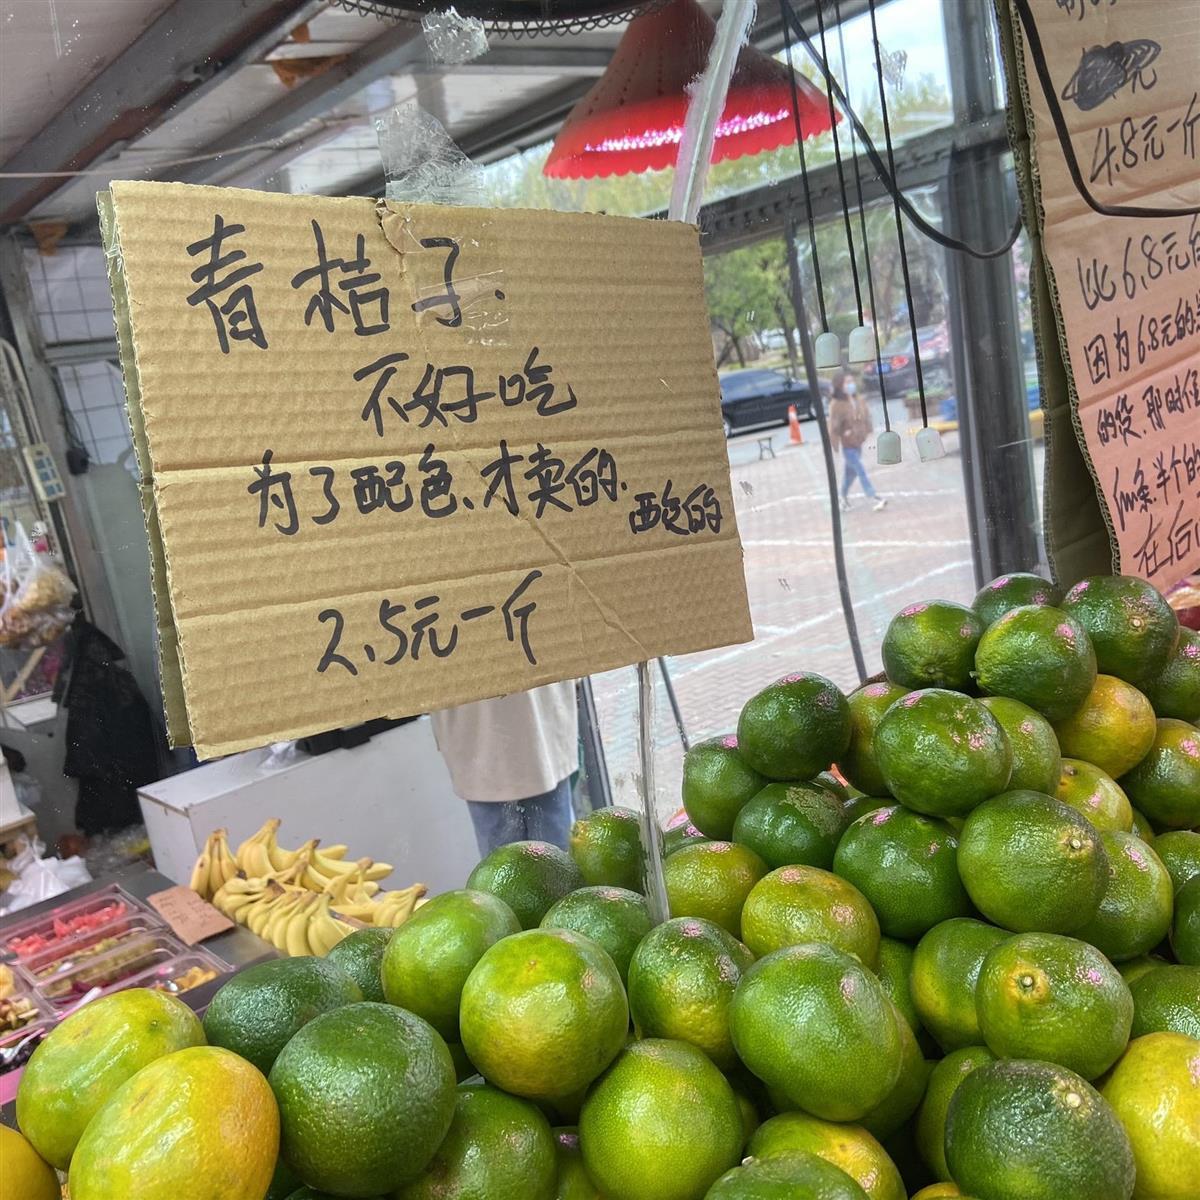 青桔子.
不好吃
为了配色、才卖的.
酸的
2.5元一斤
4.8元一斤
比6.8元
因为6.8元的
的货.那时候
在